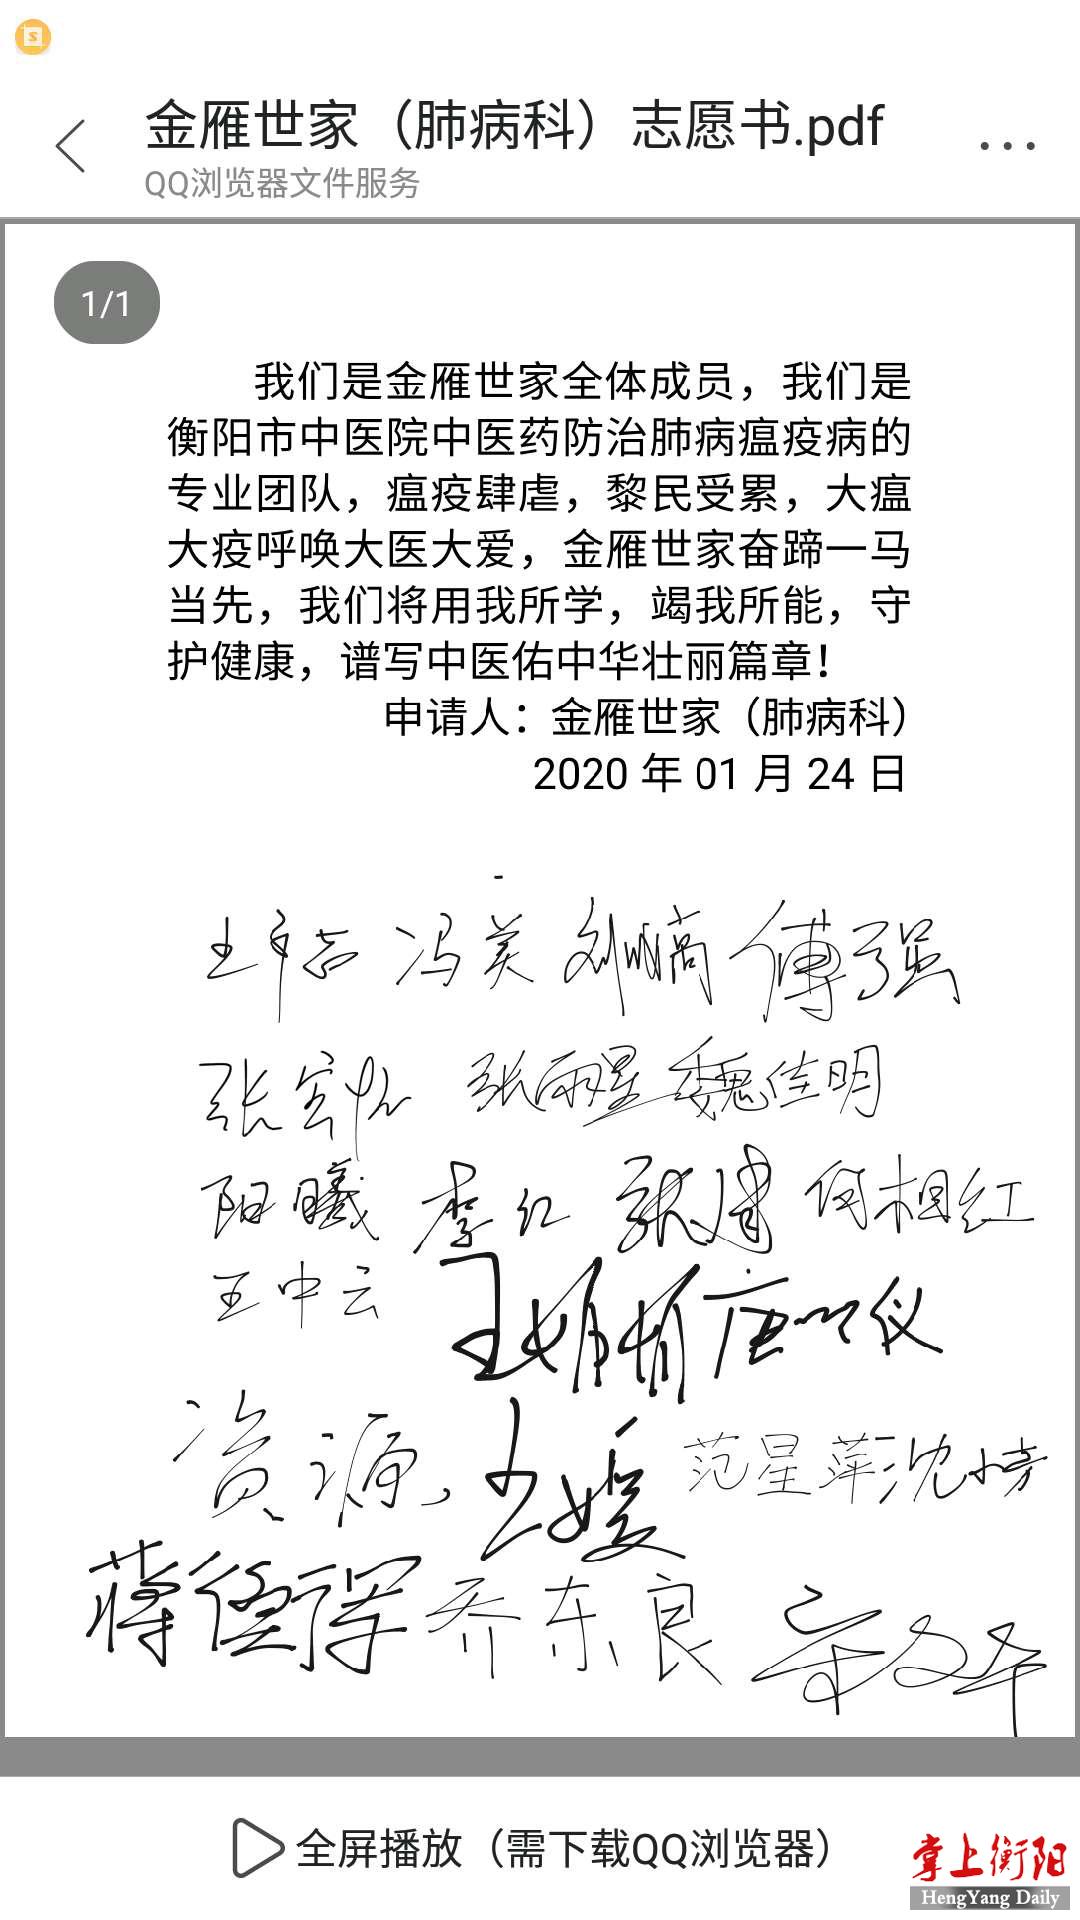 金雁世家（肺病科）志愿书.pdf
QQ浏览器文件服务
1/1
我们是金雁世家全体成员，我们是
衡阳市中医院中医药防治肺病瘟疫病的
专业团队，瘟疫肆虐，黎民受累，大瘟
大疫呼唤大医大爱，金雁世家奋蹄一马
当先，我们将用我所学，竭我所能，守
护健康，谱写中医佑中华壮丽篇章！
申请人：金雁世家（肺病科）
2020 年 01 月 24 日
冯美 傅强
张雨星 魏佳明
阳曦 李红 何相红
王中云
资源 王媛 范星萍 沈小芳
蒋德得 乔东良
全屏播放（需下载QQ浏览器）
掌上衡阳
HengYang Daily